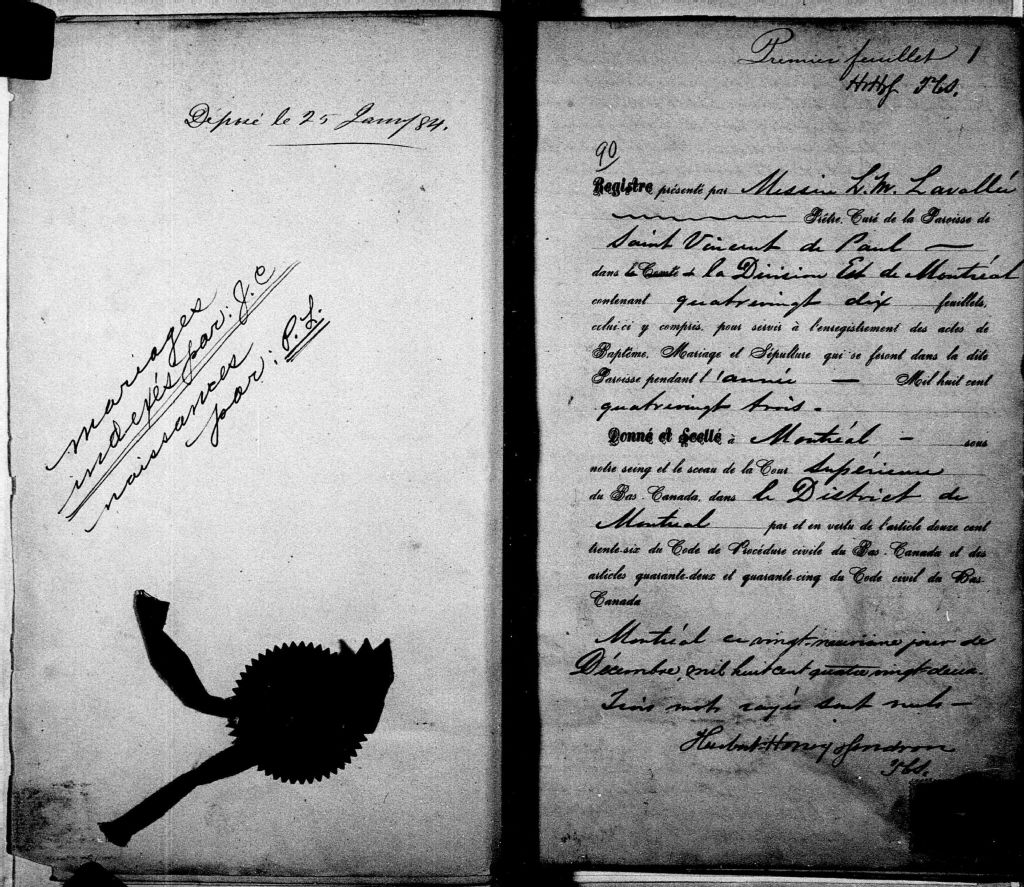 Déposé le 25 Janv/84.
mariages
indexés par: J. C
naissances
par: P. L.
Premier feuillet 1
90
Registre présenté par Messire L. M. Lavallée
Prêtre, Curé de la Paroisse de
Saint Vincent de Paul —
dans le Comté de la Division Est de Montréal
contenant quatrevingt dix feuillets,
celui-ci y compris, pour servir à l'enregistrement des actes de
Baptême, Mariage et Sépulture qui se feront dans la dite
Paroisse pendant l'année — Mil huit cent
quatrevingt trois.
Donné et Scellé à Montréal — sous
notre seing et le sceau de la Cour Supérieure
du Bas-Canada, dans le District de
Montréal par et en vertu de l'article douze cent
trente-six du Code de Procédure civile du Bas-Canada et des
articles quarante-deux et quarante-cinq du Code civil du Bas
Canada
Montréal ce vingt-neuvième jour de
Décembre, mil huit cent quatre vingt-deux.
Trois mots rayés sont nuls —